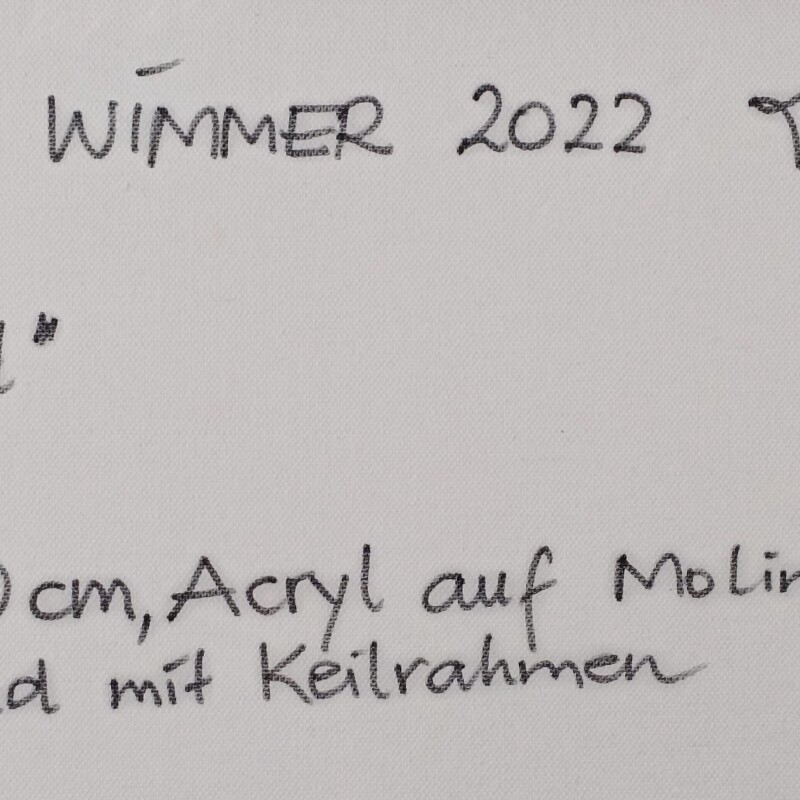 WIMMER 2022
cm, Acryl auf Molin
mit Keilrahmen